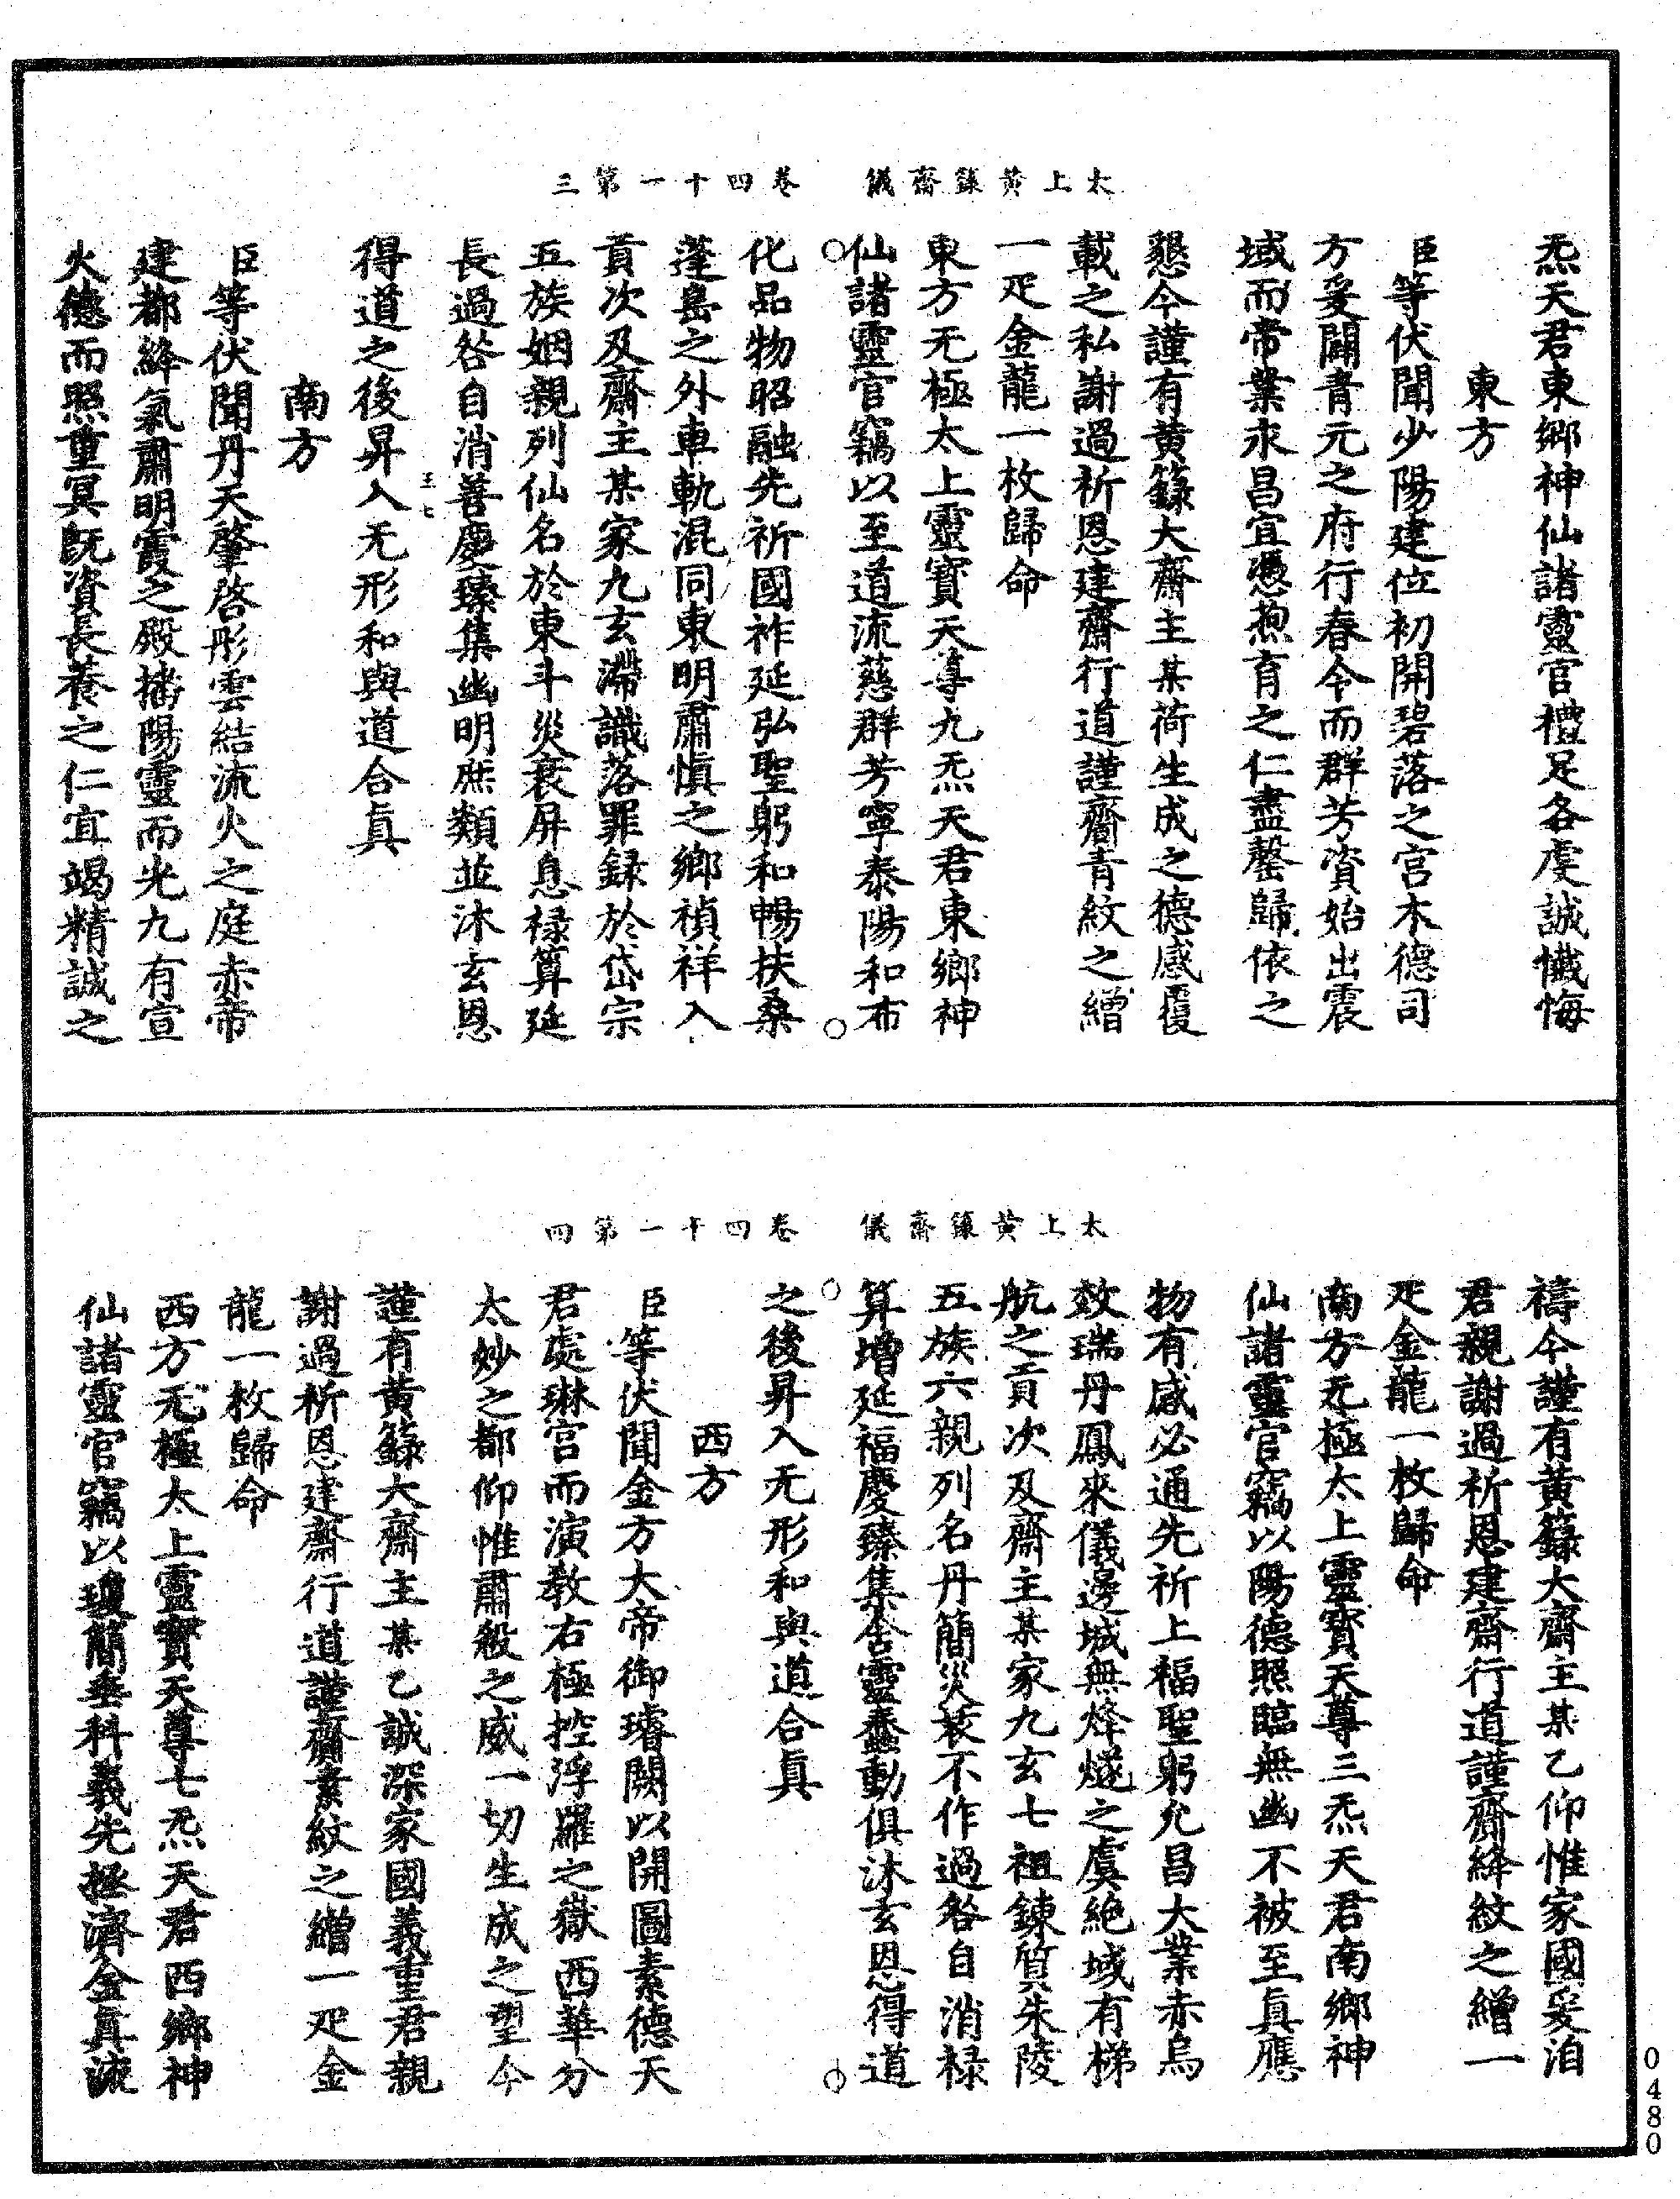 太上黃籙齋儀　卷四十一第三
炁天君東鄉神仙諸靈官禮足各虔誠懺悔
東方
臣等伏聞少陽建位初開碧落之宮木德司
方爰闢青元之府行春令而群芳資始出震
域而帝業永昌宜憑煦育之仁盡罄歸依之
懇今謹有黃籙大齋主某荷生成之德感覆
載之私謝過祈恩建齋行道謹齎青紋之繒
一疋金龍一枚歸命
東方无極太上靈寶天尊九炁天君東鄉神
仙諸靈官竊以至道流慈群芳寧泰陽和布
化品物昭融先祈國祚延弘聖躬和暢扶桑
蓬島之外車軌混同東明肅慎之鄉禎祥入
貢次及齋主某家九玄滯識落罪録於岱宗
五族姻親列仙名於東斗災衰屏息禄算延
長過咎自消善慶臻集幽明庶類並沐玄恩
王七
得道之後昇入无形和與道合眞
南方
臣等伏聞丹天肇啓彤雲結流火之庭赤帝
建都絳氣肅明霞之殿播陽靈而光九有宣
火德而照重冥既資長養之仁宜竭精誠之
太上黃籙齋儀　卷四十一第四
禱今謹有黃籙大齋主某乙仰惟家國爰洎
君親謝過祈恩建齋行道謹齎絳紋之繒一
疋金龍一枚歸命
南方无極太上靈寶天尊三炁天君南鄉神
仙諸靈官竊以陽德照臨無幽不被至眞應
物有感必通先祈上福聖躬允昌大業赤烏
效瑞丹鳳來儀邊城無烽燧之虞絶域有梯
航之貢次及齋主某家九玄七祖鍊質朱陵
五族六親列名丹簡災衰不作過咎自消禄
算增延福慶臻集含靈蠢動俱沐玄恩得道
之後昇入无形和與道合眞
西方
臣等伏聞金方大帝御璿闕以開圖素德天
君處琳宮而演教右極控浮羅之嶽西華分
太妙之都仰惟肅殺之威一切生成之望今
謹有黃籙大齋主某乙誠深家國義重君親
謝過祈恩建齋行道謹齎素紋之繒一疋金
龍一枚歸命
西方无極太上靈寶天尊七炁天君西鄉神
仙諸靈官竊以瓊簡垂科義先拯濟金眞流
0480